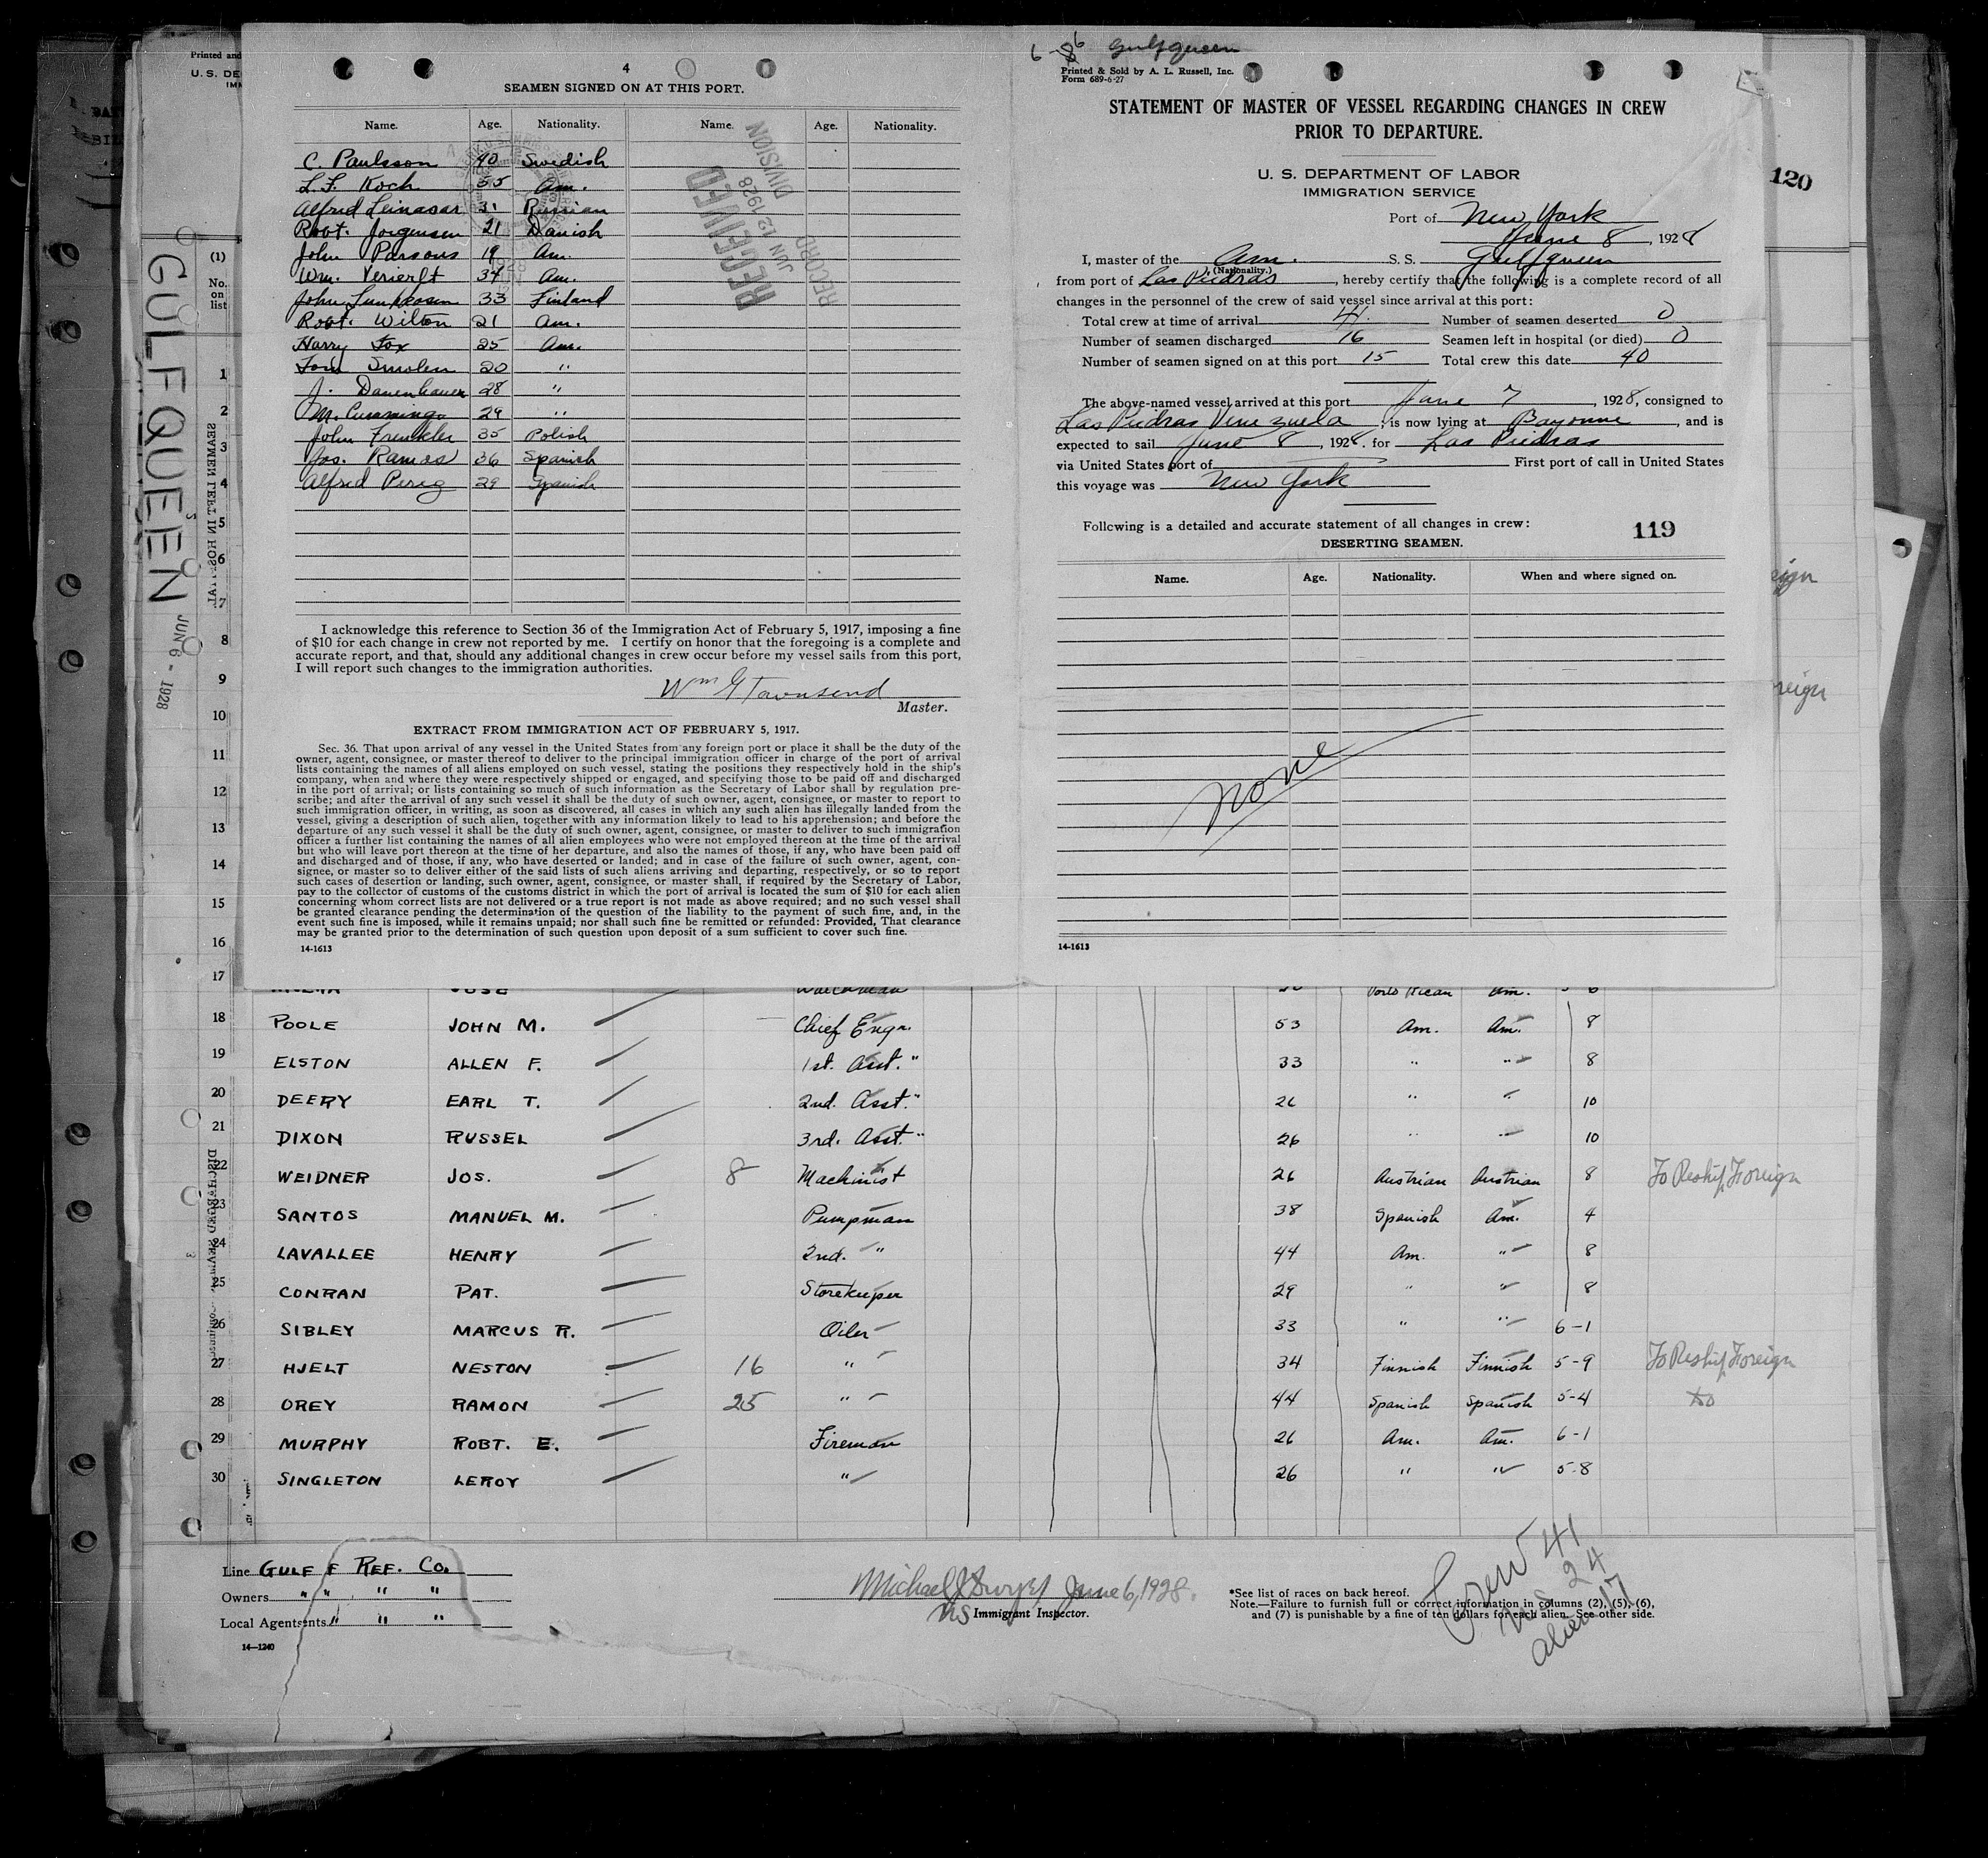 4
SEAMEN SIGNED ON AT THIS PORT.
Name. Age. Nationality. Name. Age. Nationality.
C. Paulsson 40 Swedish
L. F. Koch 35 Am.
Alfred Leinasar 31 Russian
Robt. Jorgensen 21 Danish
John Parsons 19 Am.
Wm. 34 Am.
John 33 Finland
Robt. Wilton 21 Am.
Harry Fox 25 Am.
Smolen 20 "
J. Danenhauer 28 "
M. Cummings 29 "
John Frenkler 35 Polish
Jos. Ramos 36 Spanish
Alfred Perez 29 Spanish
RECEIVED
JUN 12 1928
RECORD DIVISION
I acknowledge this reference to Section 36 of the Immigration Act of February 5, 1917, imposing a fine
of $10 for each change in crew not reported by me. I certify on honor that the foregoing is a complete and
accurate report, and that, should any additional changes in crew occur before my vessel sails from this port,
I will report such changes to the immigration authorities.
Wm G Townsend
Master.
EXTRACT FROM IMMIGRATION ACT OF FEBRUARY 5, 1917.
Sec. 36. That upon arrival of any vessel in the United States from any foreign port or place it shall be the duty of the
owner, agent, consignee, or master thereof to deliver to the principal immigration officer in charge of the port of arrival
lists containing the names of all aliens employed on such vessel, stating the positions they respectively hold in the ship's
company, when and where they were respectively shipped or engaged, and specifying those to be paid off and discharged
in the port of arrival; or lists containing so much of such information as the Secretary of Labor shall by regulation pre-
scribe; and after the arrival of any such vessel it shall be the duty of such owner, agent, consignee, or master to report to
such immigration officer, in writing, as soon as discovered, all cases in which any such alien has illegally landed from the
vessel, giving a description of such alien, together with any information likely to lead to his apprehension; and before the
departure of any such vessel it shall be the duty of such owner, agent, consignee, or master to deliver to such immigration
officer a further list containing the names of all alien employees who were not employed thereon at the time of the arrival
but who will leave port thereon at the time of her departure, and also the names of those, if any, who have been paid off
and discharged and of those, if any, who have deserted or landed; and in case of the failure of such owner, agent, con-
signee, or master so to deliver either of the said lists of such aliens arriving and departing, respectively, or so to report
such cases of desertion or landing, such owner, agent, consignee, or master shall, if required by the Secretary of Labor,
pay to the collector of customs of the customs district in which the port of arrival is located the sum of $10 for each alien
concerning whom correct lists are not delivered or a true report is not made as above required; and no such vessel shall
be granted clearance pending the determination of the question of the liability to the payment of such fine, and, in the
event such fine is imposed, while it remains unpaid; nor shall such fine be remitted or refunded: Provided, That clearance
may be granted prior to the determination of such question upon deposit of a sum sufficient to cover such fine.
14-1613
Gulfqueen
Printed & Sold by A. L. Russell, Inc.
Form 689-6-27
STATEMENT OF MASTER OF VESSEL REGARDING CHANGES IN CREW
PRIOR TO DEPARTURE.
U. S. DEPARTMENT OF LABOR
IMMIGRATION SERVICE
Port of New York
June 8, 1928
I, master of the Am. S. S. Gulfqueen
(Nationality.)
from port of Las Piedras, hereby certify that the following is a complete record of all
changes in the personnel of the crew of said vessel since arrival at this port:
Total crew at time of arrival 41. Number of seamen deserted 0
Number of seamen discharged 16 Seamen left in hospital (or died) 0
Number of seamen signed on at this port 15 Total crew this date 40
The above-named vessel arrived at this port June 7, 1928, consigned to
Las Piedras Venezuela; is now lying at Bayonne, and is
expected to sail June 8, 1928. for Las Piedras
via United States port of First port of call in United States
this voyage was New York
Following is a detailed and accurate statement of all changes in crew:
119
DESERTING SEAMEN.
Name. Age. Nationality. When and where signed on.
None
14-1613
120
Printed and
U. S. DE
IMM
GULFQUEEN JUN 6 - 1928
(1)
No. on list
SEAMEN LEFT IN HOSPITAL
1
2
3
4
5
6
7
8
9
10
11
12
13
14
15
16
17 JOSE Watchman Porto Rican Am.
18 POOLE JOHN M. Chief Engr. 53 Am. Am. 8
19 ELSTON ALLEN F. 1st. Asst. " 33 " " 8
20 DEERY EARL T. 2nd. Asst. " 26 " " 10
21 DIXON RUSSEL 3rd. Asst. " 26 " " 10
22 WEIDNER JOS. 8 Machinist 26 Austrian Austrian 8 To Reship Foreign
23 SANTOS MANUEL M. Pumpman 38 Spanish Am. 4
24 LAVALLEE HENRY 2nd. " 44 Am. " 8
25 CONRAN PAT. Storekeeper 29 " " 8
26 SIBLEY MARCUS R. Oiler 33 " " 6-1
27 HJELT NESTON 16 " 34 Finnish Finnish 5-9 To Reship Foreign
28 OREY RAMON 25 " 44 Spanish Spanish 5-4 do
29 MURPHY ROBT. E. Fireman 26 Am. Am. 6-1
30 SINGLETON LEROY " 26 " " 5-8
Line GULF REF. Co.
Owners " " " "
Local Agents " " "
14—1240
Michael J. Dwyer June 6, 1928.
Immigrant Inspector.
*See list of races on back hereof.
Note.—Failure to furnish full or correct information in columns (2), (5), (6),
and (7) is punishable by a fine of ten dollars for each alien. See other side.
Crew 41
US 24
alien 17